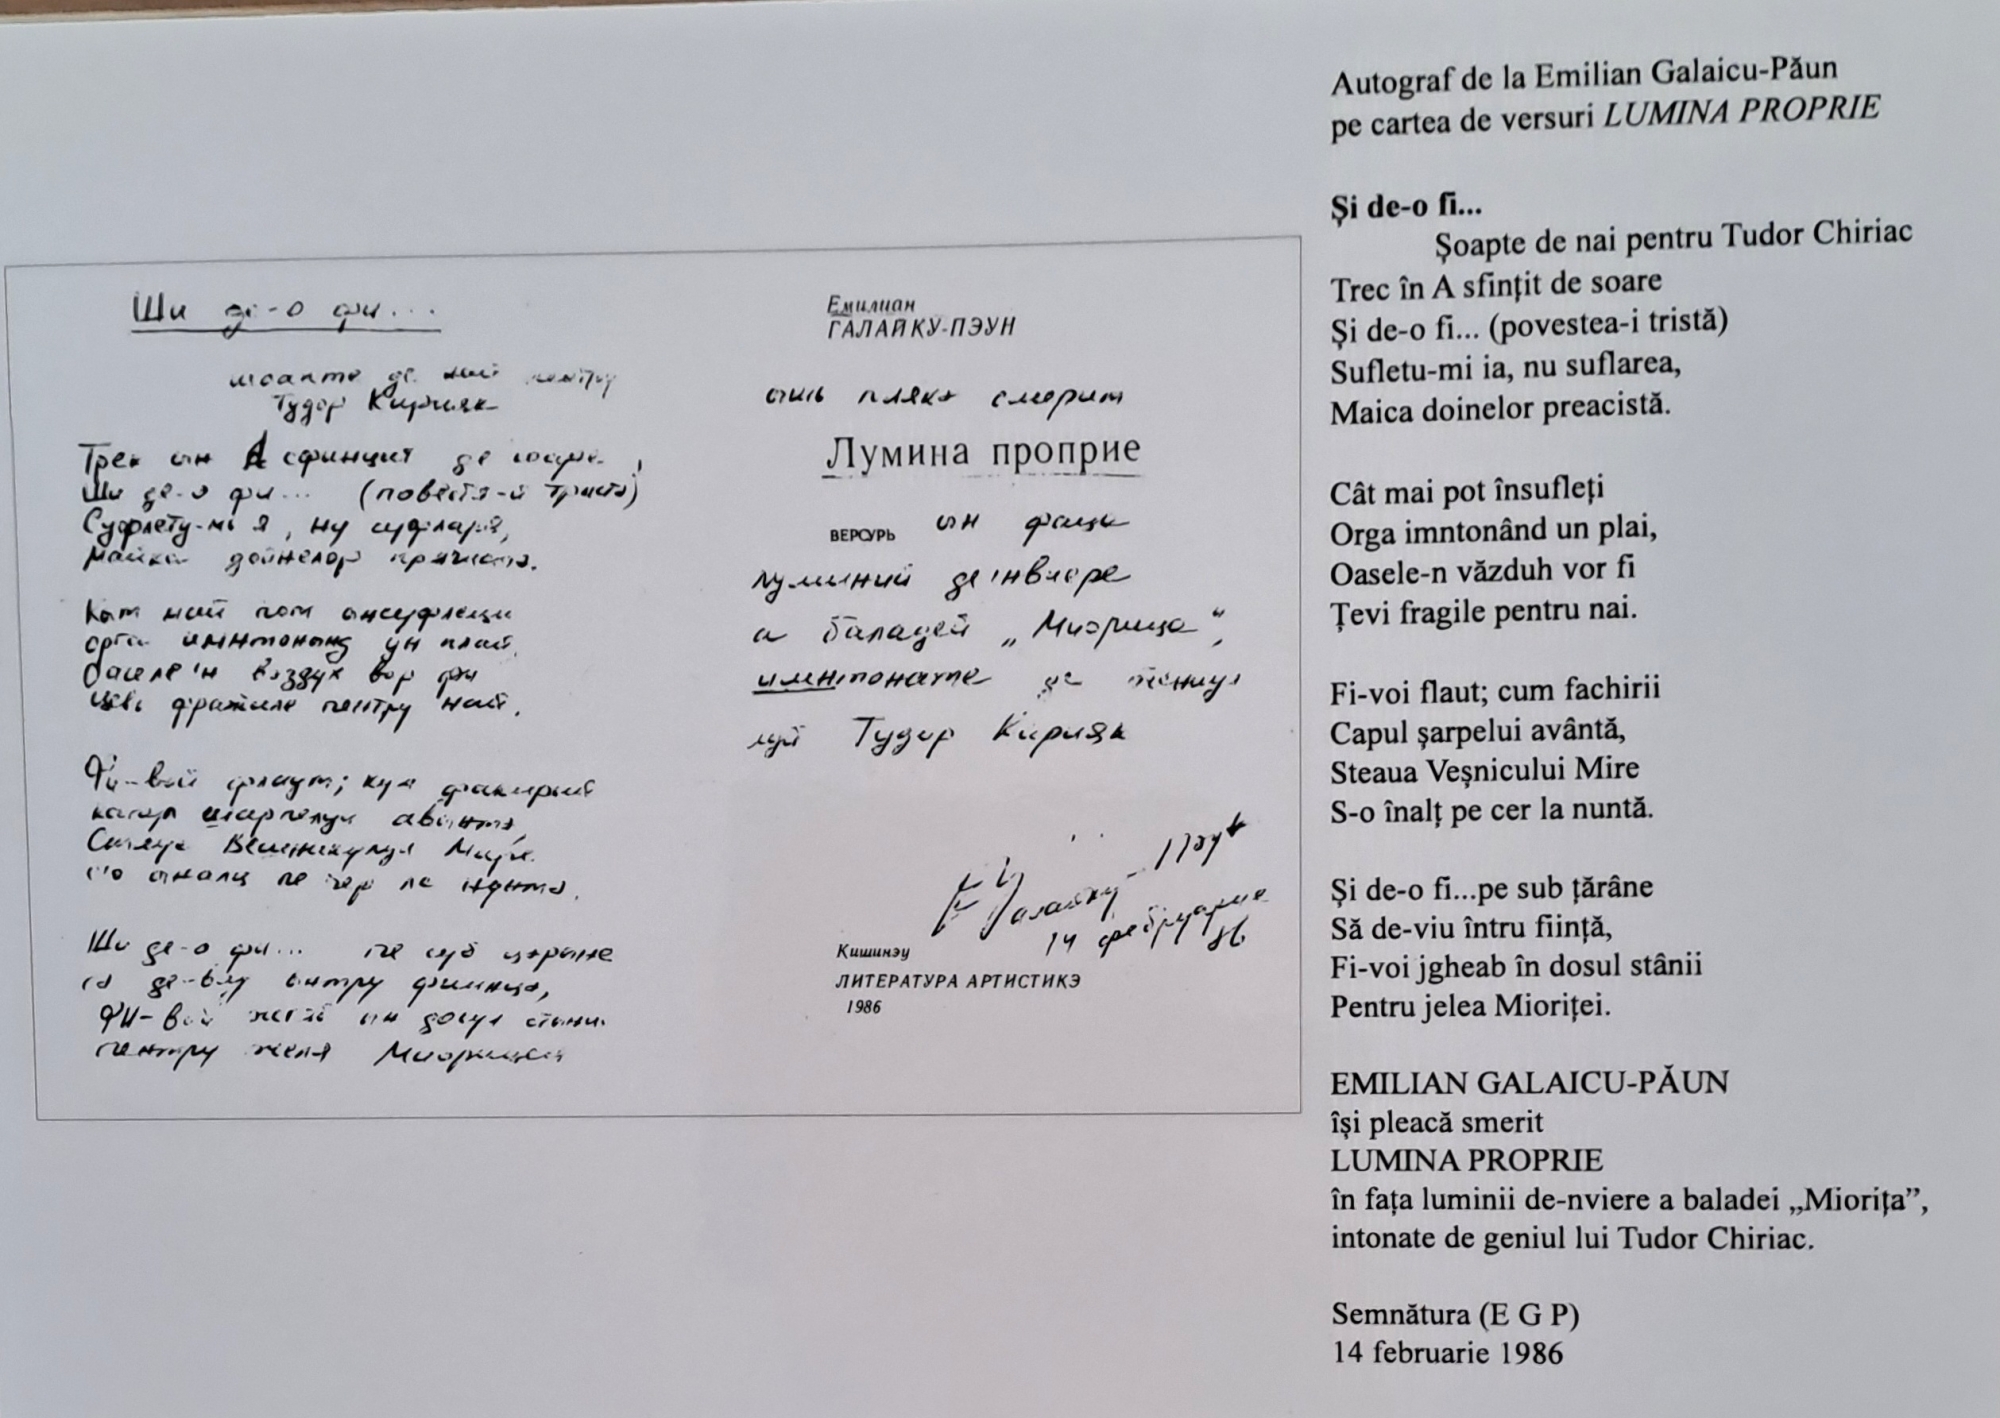 Ши де-о фи...
шоапте де най пентру
Тудор Кирияк
Трек ын А сфинцит де соаре,
Ши де-о фи... (повестя-й тристэ)
Суфлету-мь я, ну суфларя,
Майка дойнелор прячистэ.
Кыт май пот ынсуфлеци
орга имнтонынд ун плай,
Оаселе'н вэздух вор фи
цевь фражиле пентру най.
Фи-вой флаут; кум факирий
капул шарпелуй авынтэ,
Стяуа Вешникулуй Мире
с'о ыналц пе чер ла нунтэ.
Ши де-о фи... пе суб цэрыне
сэ де-виу ынтру фиинцэ,
Фи-вой жгяб ын досул стыний
пентру желя Миорицей
Емилиан
ГАЛАЙКУ-ПЭУН
ышь плякэ смерит
Лумина проприе
ВЕРСУРЬ ын фаца
луминий де'нвиере
а баладей „Миорица”,
имнтонате де жениул
луй Тудор Кирияк
Е Галайку-Пэун
14 фебруарие
86
Кишинэу
ЛИТЕРАТУРА АРТИСТИКЭ
1986
Autograf de la Emilian Galaicu-Păun
pe cartea de versuri LUMINA PROPRIE
Și de-o fi...
Șoapte de nai pentru Tudor Chiriac
Trec în A sfințit de soare
Și de-o fi... (povestea-i tristă)
Sufletu-mi ia, nu suflarea,
Maica doinelor preacistă.
Cât mai pot însufleți
Orga imntonând un plai,
Oasele-n văzduh vor fi
Țevi fragile pentru nai.
Fi-voi flaut; cum fachirii
Capul șarpelui avântă,
Steaua Veșnicului Mire
S-o înalț pe cer la nuntă.
Și de-o fi...pe sub țărâne
Să de-viu întru ființă,
Fi-voi jgheab în dosul stânii
Pentru jelea Mioriței.
EMILIAN GALAICU-PĂUN
își pleacă smerit
LUMINA PROPRIE
în fața luminii de-nviere a baladei „Miorița”,
intonate de geniul lui Tudor Chiriac.
Semnătura (E G P)
14 februarie 1986